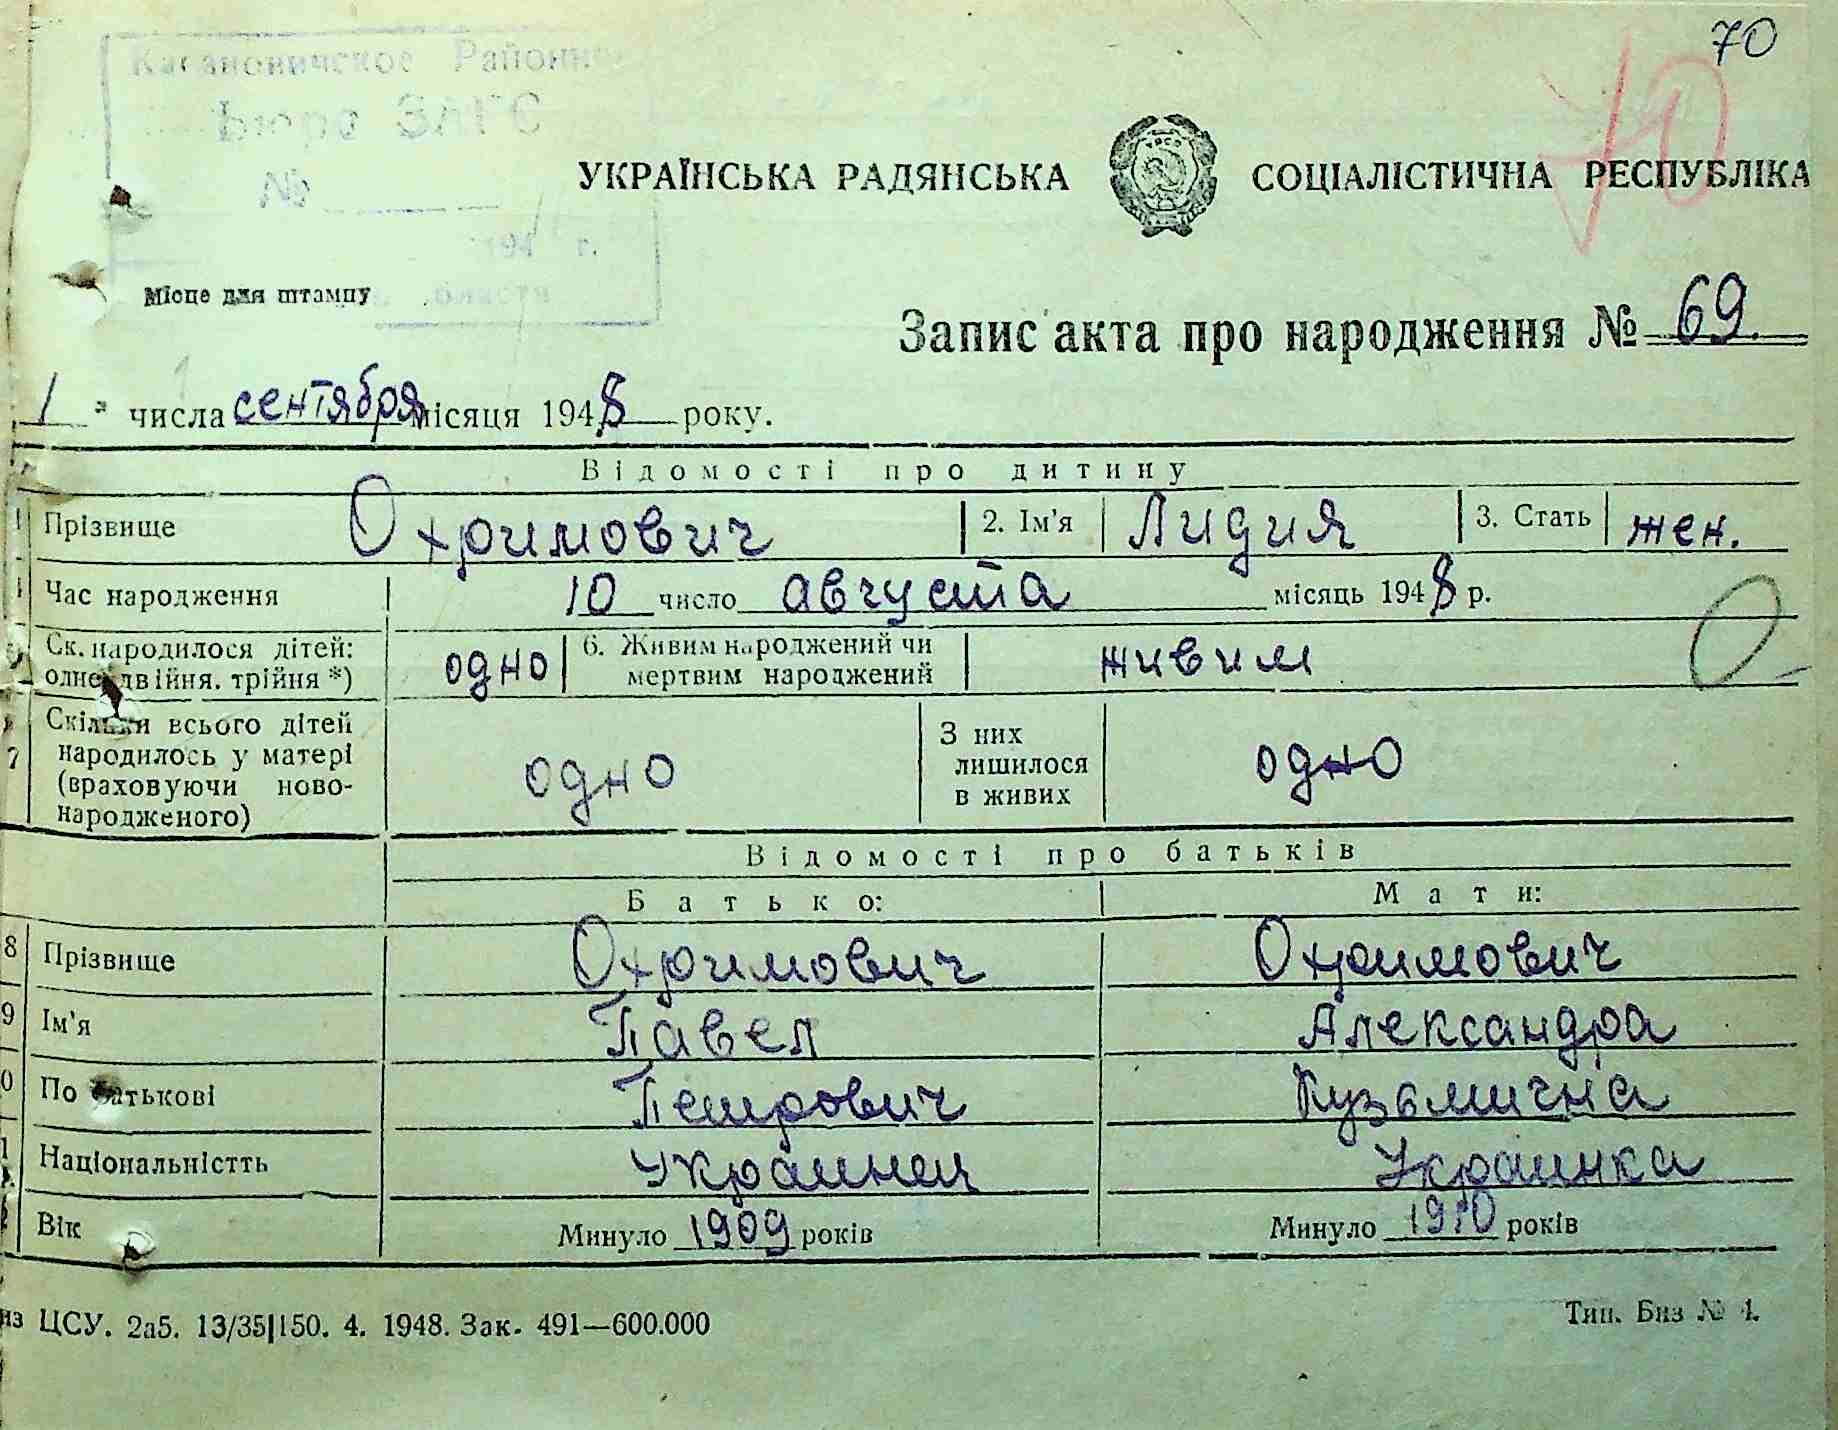 70
70
Районн
Бюро ЗАГС
№
194 г.
области
УКРАЇНСЬКА РАДЯНСЬКА СОЦІАЛІСТИЧНА РЕСПУБЛІКА
УРСР
Місце для штампу
Запис акта про народження № 69.
1 " числа сентября місяця 1948 року.
Відомості про дитину
1 Прізвище Охримович 2. Ім'я Лидия 3. Стать жен.
Час народження 10 число августа місяць 1948 р.
Ск. народилося дітей: одно 6. Живим народжений чи живим
двійня. трійня *) мертвим народжений
Скільки всього дітей З них
7 народилось у матері одно лишилося одно
(враховуючи ново- в живих
народженого)
Відомості про батьків
Батько: Мати:
8 Прізвище Охримович Охримович
9 Ім'я Павел Александра
0 По батькові Петрович Кузьмична
1 Національністть Украинец Украинка
Вік Минуло 1909 років Минуло 1910 років
из ЦСУ. 2а5. 13/35|150. 4. 1948. Зак. 491—600.000
Тип. Биз № 4.